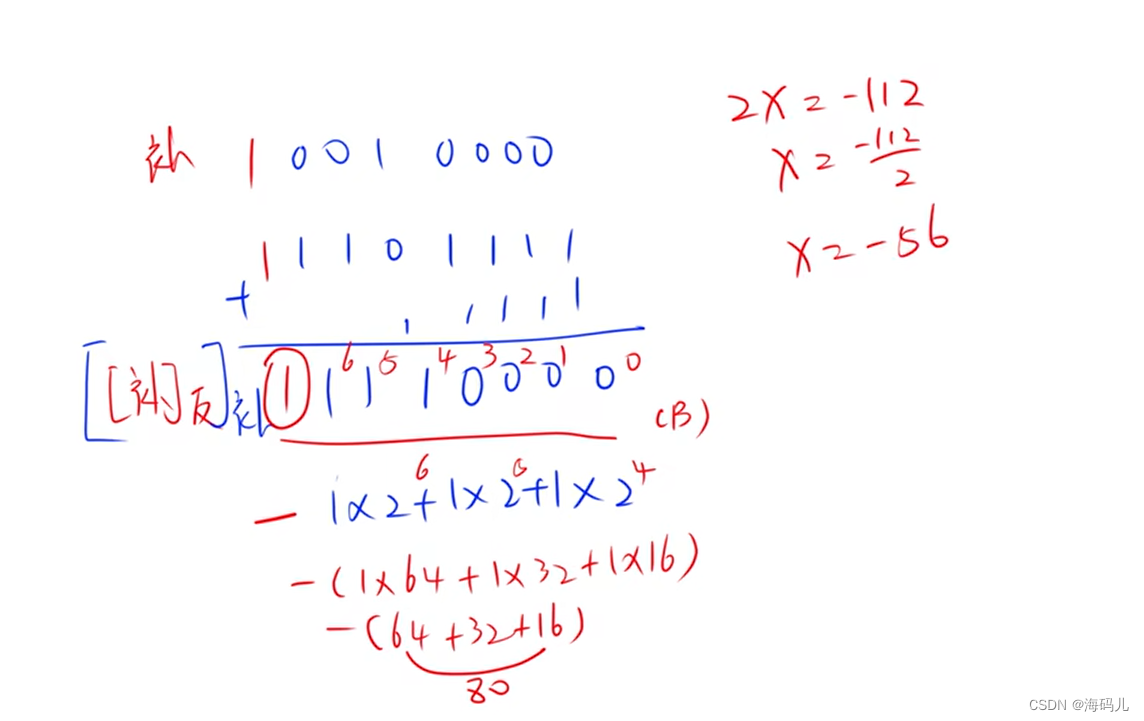 补 1 0 0 1 0 0 0 0
1 1 1 0 1 1 1 1
+ 1 1 1 1 1
[[补]反]补 1 1⁶ 1⁵ 1⁴ 0³ 0² 0¹ 0⁰ (B)
- 1×2⁶+1×2⁵+1×2⁴
-(1×64+1×32+1×16)
-(64+32+16)
80
2X=-112
X=-112/2
X=-56
CSDN @海码儿